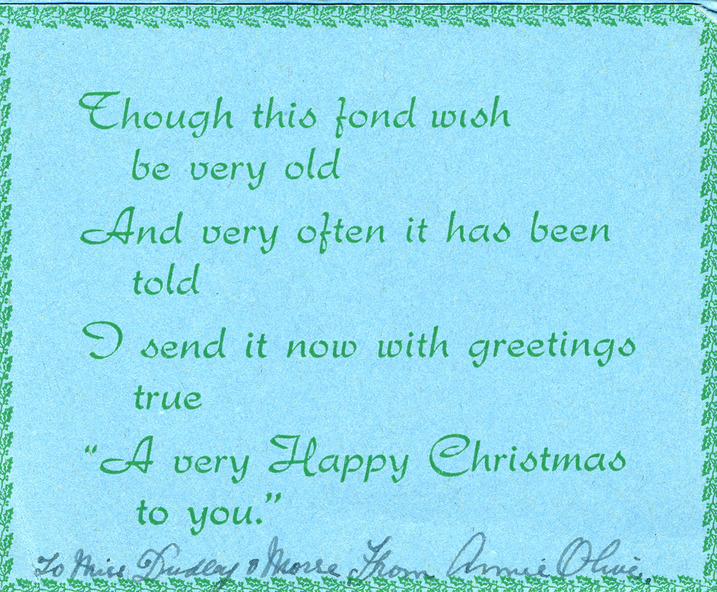 Though this fond wish
be very old
And very often it has been
told
I send it now with greetings
true
“A very Happy Christmas
to you.”
To Miss Dudley & Morse From Annie Olive.